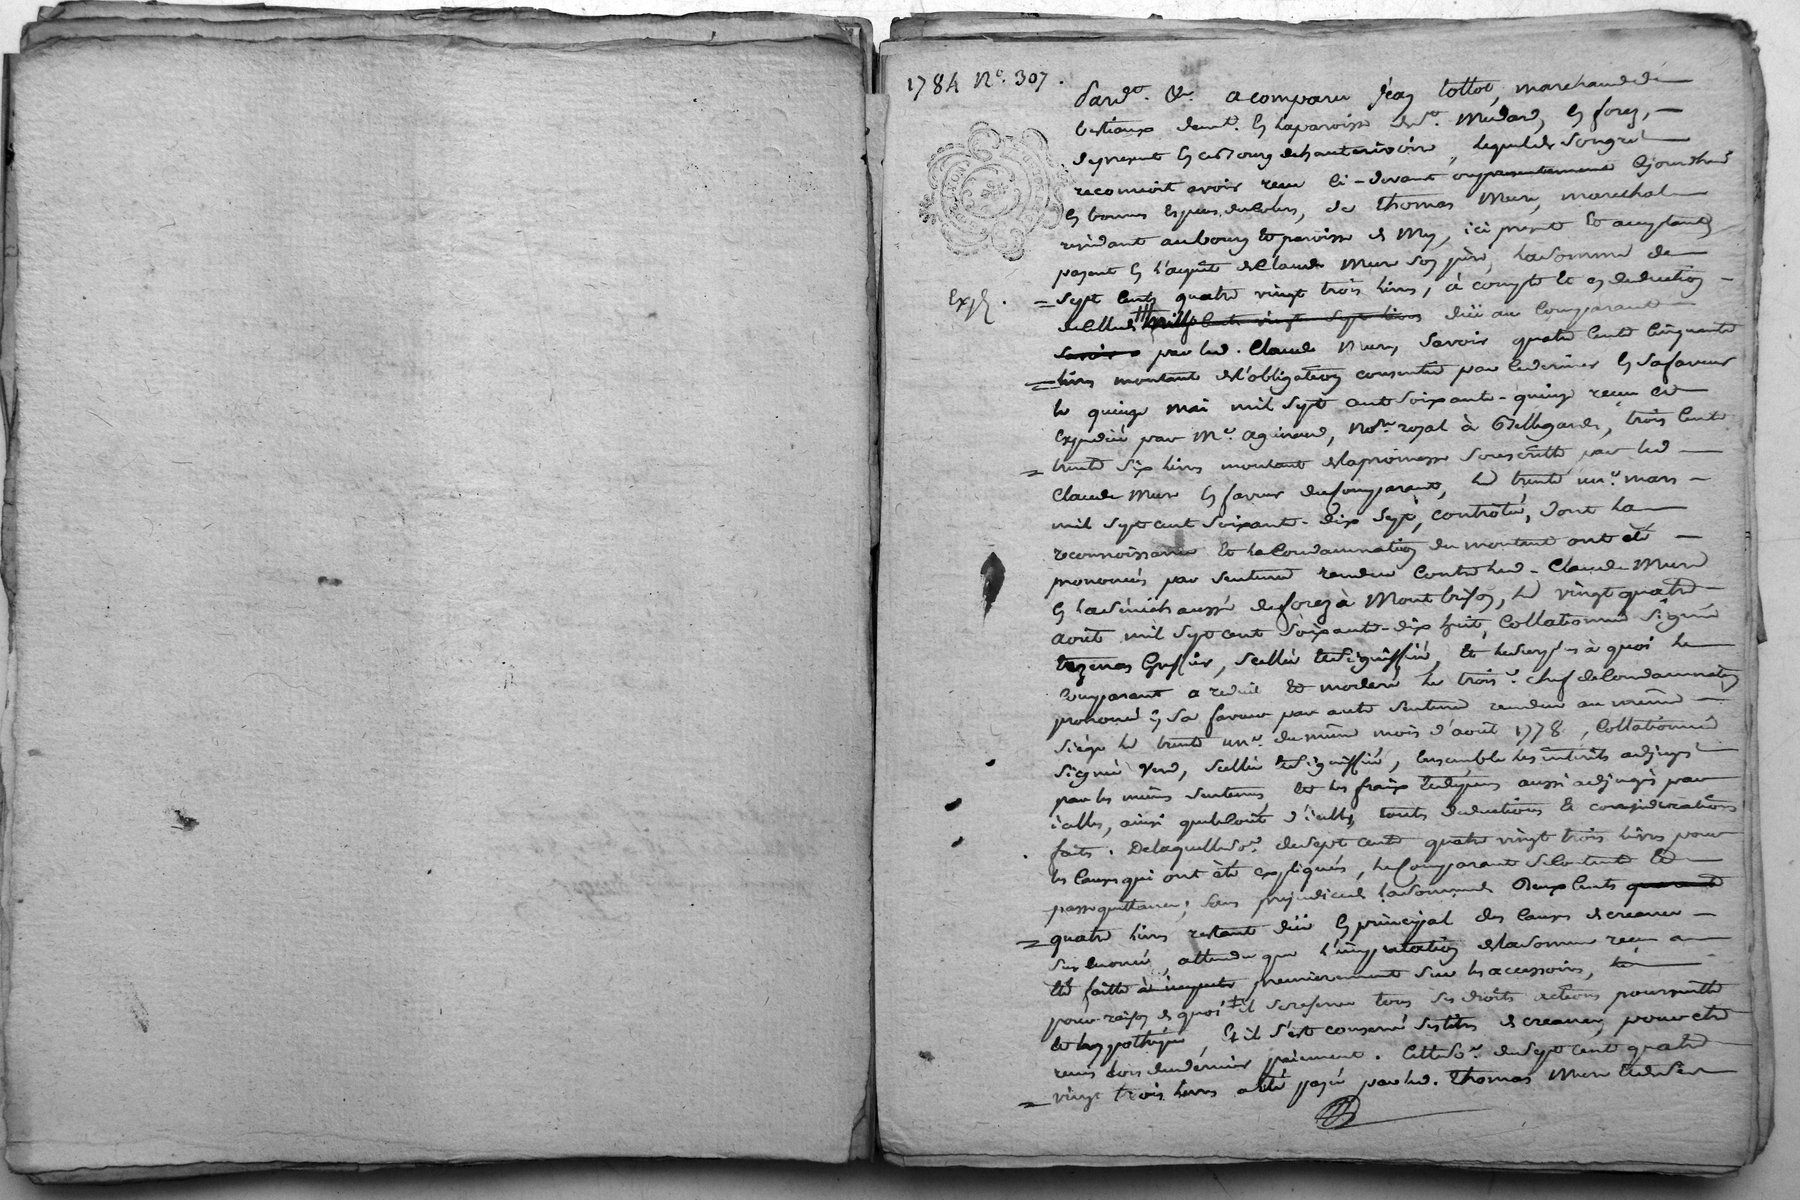 1784 N.° 307.
Pard.t &c. a comparu Jean tottot, marchand de
bestiaux demt. en la paroisse de st. Medard, en forez,
de present en ce Bourg de hauterivoire, lequel de son gré
reconnoit avoir reçu ci-devant ou presentement Ejourdhui
en bonnes Especes du Cours, de Thomas Mure, marechal
residant au bourg et paroisse de Mey, ici present et acceptant
payant en l'acquit de Claude Mure son père, la somme de
Exp.
sept Cents quatre vingt trois livres, à compte et en deduction
de Celle de mille Cent vingt sept livres düe au Comparant
savoir par led. Claude Mure, savoir quatre Cents Cinquante
livres montant de l'obligation consentie par ce dernier en sa faveur
le quinze mai mil sept cent soixante-quinze reçue et
Expediée par Me. aginaud, Nore. royal à Bellegarde, trois Cents
trente six livres montant de la promesse souscritte par led
Claude Mure en faveur du Comparant, le trente un.e mars
mil sept cent soixante-dix sept, contrôlée, dont la
reconnoissance et la Condamnation du montant ont été
prononcés par sentence rendue Contre led. Claude Mure
en la sénéchaussée de forez à Montbrison, le vingt quatre
août mil sept cent soixante-dix huit, Collationné signé
Greffier, scellée et signiffiée, et le surplus à quoi le
Comparant a reduit et moderé le trois.e chef de Condamnation
prononcé en sa faveur par autre sentence rendue au même
siège le trente un.e du même mois d'août 1778, Collationné
signé Verd, scellée et signiffiée, Ensemble les intérêts adjugés
par les mêmes sentences et les fraix et depens aussi adjugés par
icelles, ainsi que le Coût d'icelles, touts deductions et considerations
faits. De laquelle so.e de sept cent quatre vingt trois livres pour
les Causes qui ont été expliquées, le Comparant se Contente et
passe quittance; sans prejudice de la somme de Deux Cents quarante
quatre livres restant düe en principal des Causes de creance
sus enoncée, attendu que l'imputation de la somme reçue a
été faitte à imputer premierement sur les accessoires, le
pour raison de quoi il se reserve tous ses droits actions poursuitte
et hypothéque, et il s'est conservé ses titres de creance, pour etre
remis lors du dernier paiement. Cette so.e de sept cent quatre
vingt trois livres a été payée par led. Thomas Mure et de ses